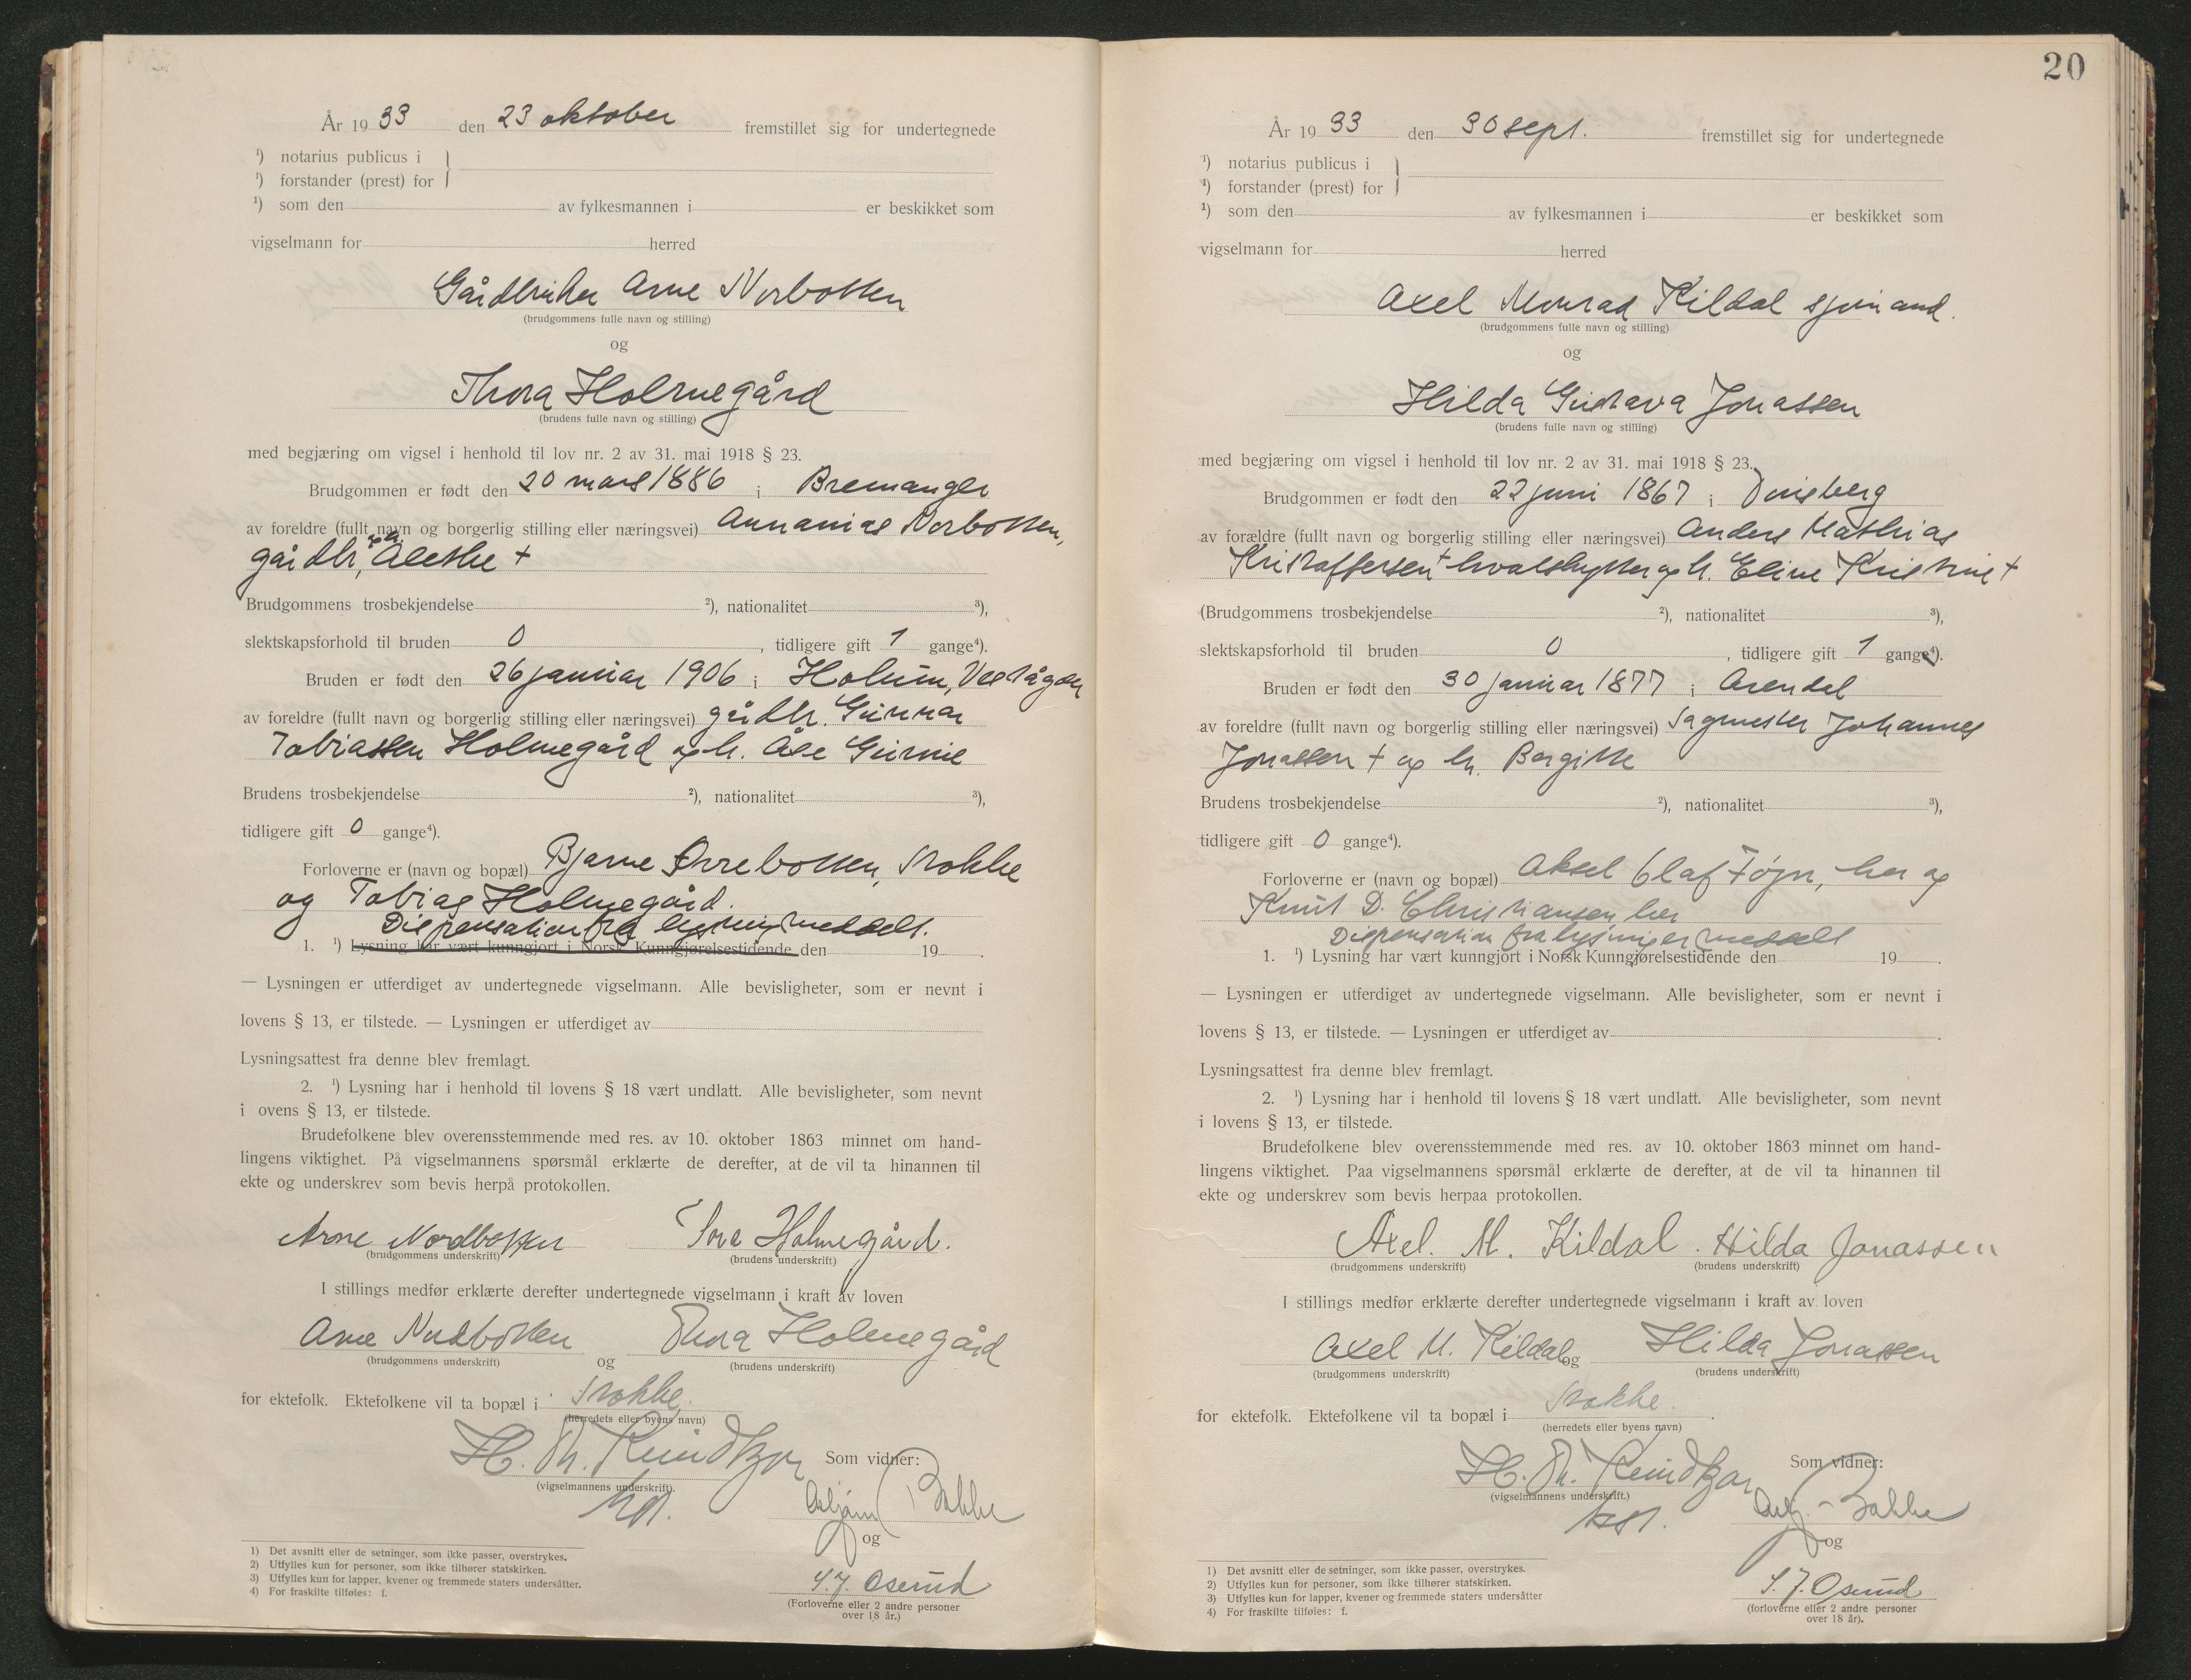 År 19 33 den 23 oktober fremstillet sig for undertegnede
¹) notarius publicus i
¹) forstander (prest) for
¹) som den av fylkesmannen i er beskikket som
vigselmann for herred
Gårdbruker Arne Norbotten
(brudgommens fulle navn og stilling)
og
Thora Holmegård
(brudens fulle navn og stilling)
med begjæring om vigsel i henhold til lov nr. 2 av 31. mai 1918 § 23.
Brudgommen er født den 20 mars 1886 i Bremanger
av foreldre (fullt navn og borgerlig stilling eller næringsvei) Annanias Norbotten,
gårdbr, og h. Alethe +
Brudgommens trosbekjendelse ²), nationalitet ³),
slektskapsforhold til bruden 0, tidligere gift 1 gange⁴).
Bruden er født den 26 januar 1906 i Holum, Vest Agder
av foreldre (fullt navn og borgerlig stilling eller næringsvei) gårdbr. Gunnar
Tobiassen Holmegård og h. Åse Gurine
Brudens trosbekjendelse ²), nationalitet ³),
tidligere gift 0 gange⁴).
Forloverne er (navn og bopæl) Bjarne Orrebotten, Stokke
og Tobias Holmegård.
Dispensation fra lysning meddelt.
1. ¹) Lysning har vært kunngjort i Norsk Kunngjørelsestidende den 19 .
— Lysningen er utferdiget av undertegnede vigselmann. Alle bevisligheter, som er nevnt i
lovens § 13, er tilstede. — Lysningen er utferdiget av
Lysningsattest fra denne blev fremlagt.
2. ¹) Lysning har i henhold til lovens § 18 vært undlatt. Alle bevisligheter, som nevnt
i ovens § 13, er tilstede.
Brudefolkene blev overensstemmende med res. av 10. oktober 1863 minnet om hand-
lingens viktighet. På vigselmannens spørsmål erklærte de derefter, at de vil ta hinannen til
ekte og underskrev som bevis herpå protokollen.
Arne Nordbotten Tora Holmegård.
(brudgommens underskrift) (brudens underskrift)
I stillings medfør erklærte derefter undertegnede vigselmann i kraft av loven
Arne Nordbotten og Thora Holmegård
(brudgommens underskrift) (brudens underskrift)
for ektefolk. Ektefolkene vil ta bopæl i Stokke.
(herredets eller byens navn)
H. Th. Som vidner:
(vigselmannens underskrift).
Asbjørn Bakke
og
S. J. Oserud
(Forloverne eller 2 andre personer
over 18 år.)
1) Det avsnitt eller de setninger, som ikke passer, overstrykes.
2) Utfylles kun for personer, som ikke tilhører statskirken.
3) Utfylles kun for lapper, kvener og fremmede staters undersåtter.
4) For fraskilte tilføies: f.
20
År 19 33 den 30 sept. fremstillet sig for undertegnede
¹) notarius publicus i
¹) forstander (prest) for
¹) som den av fylkesmannen i er beskikket som
vigselmann for herred
Axel Monrad Kildal sjømand.
(brudgommens fulle navn og stilling)
og
Hilda Gustava Jonassen
(brudens fulle navn og stilling)
med begjæring om vigsel i henhold til lov nr. 2 av 31. mai 1918 § 23.
Brudgommen er født den 22 juni 1867 i Tønsberg
av forældre (fullt navn og borgerlig stilling eller næringsvei) Anders Mathias
Kristoffersen + hvalskytter og h. Eline Kristine +
(Brudgommens trosbekjendelse ²), nationalitet ³),
slektskapsforhold til bruden 0, tidligere gift 1 gange⁴).
Bruden er født den 30 januar 1877 i Arendal
av foreldre (fullt navn og borgerlig stilling eller næringsvei) Sagmester Johannes
Jonassen + og h. Borgitte
Brudens trosbekjendelse ²), nationalitet ³),
tidligere gift 0 gange⁴).
Forloverne er (navn og bopæl) Aksel Olaf Føyn, her og
Knut D. Christiansen her
Dispensation fra lysning er meddelt
1. ¹) Lysning har vært kunngjort i Norsk Kunngjørelsestidende den 19 .
— Lysningen er utferdiget av undertegnede vigselmann. Alle bevisligheter, som er nevnt i
lovens § 13, er tilstede. — Lysningen er utferdiget av .
Lysningsattest fra denne blev fremlagt.
2. ¹) Lysning har i henhold til lovens § 18 vært undlatt. Alle bevisligheter, som nevnt
i lovens § 13, er tilstede.
Brudefolkene blev overensstemmende med res. av 10. oktober 1863 minnet om hand-
lingens viktighet. Paa vigselmannens spørsmål erklærte de derefter, at de vil ta hinannen til
ekte og underskrev som bevis herpaa protokollen.
Axel. M. Kildal. Hilda Jonassen
(brudgommens underskrift) (brudens underskrift)
I stillings medfør erklærte derefter undertegnede vigselmann i kraft av loven
Axel M. Kildal og Hilda Jonassen
(brudgommens underskrift) (brudens underskrift)
for ektefolk. Ektefolkene vil ta bopæl i Stokke.
(herredets eller byens navn)
H. Th. Som vidner:
(vigselmannens underskrift.)
Asbj. Bakke
og
S. J. Oserud
(forloverne eller 2 andre personer
over 18 år).
1) Det avsnitt eller de setninger, som ikke passer, overstrykes.
2) Utfylles kun for personer, som ikke tilhører statskirken.
3) Utfylles kun for lapper, kvener og fremmede staters undersåtter
4) For fraskilte tilføies: f.